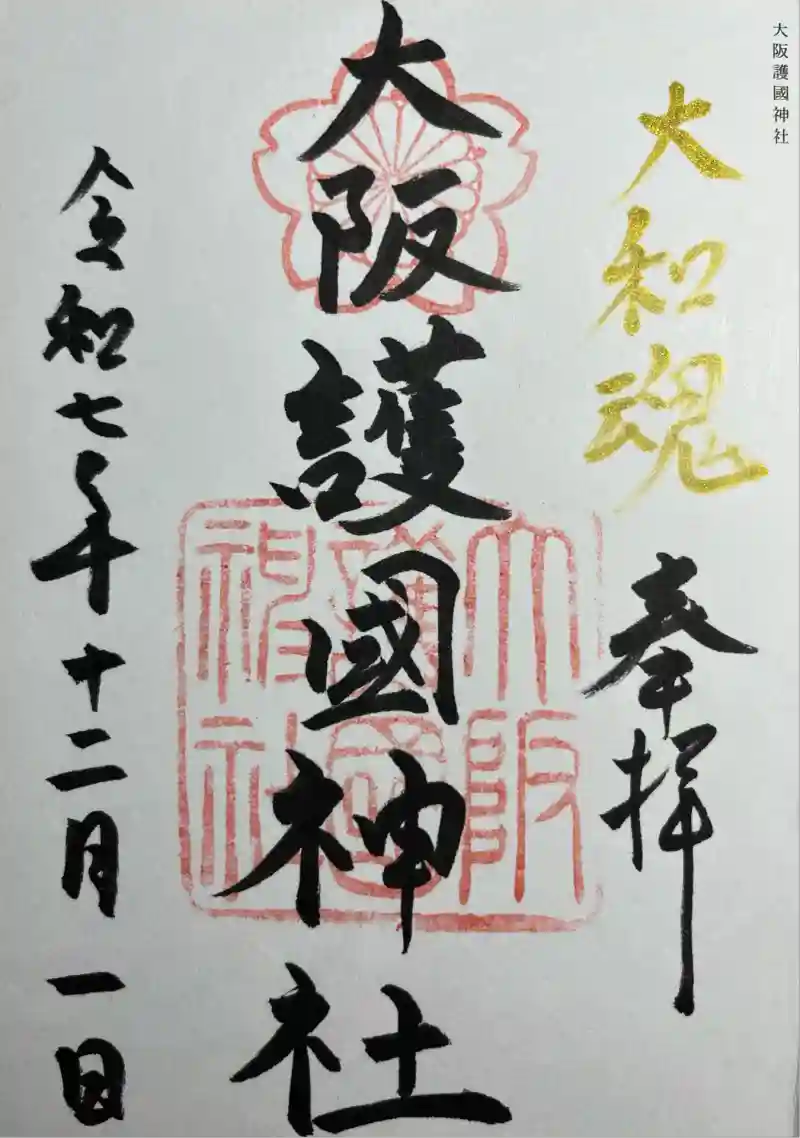 大阪護國神社
大和魂
奉拝
大阪護國神社
大阪
護國
神社
令和七年十二月一日